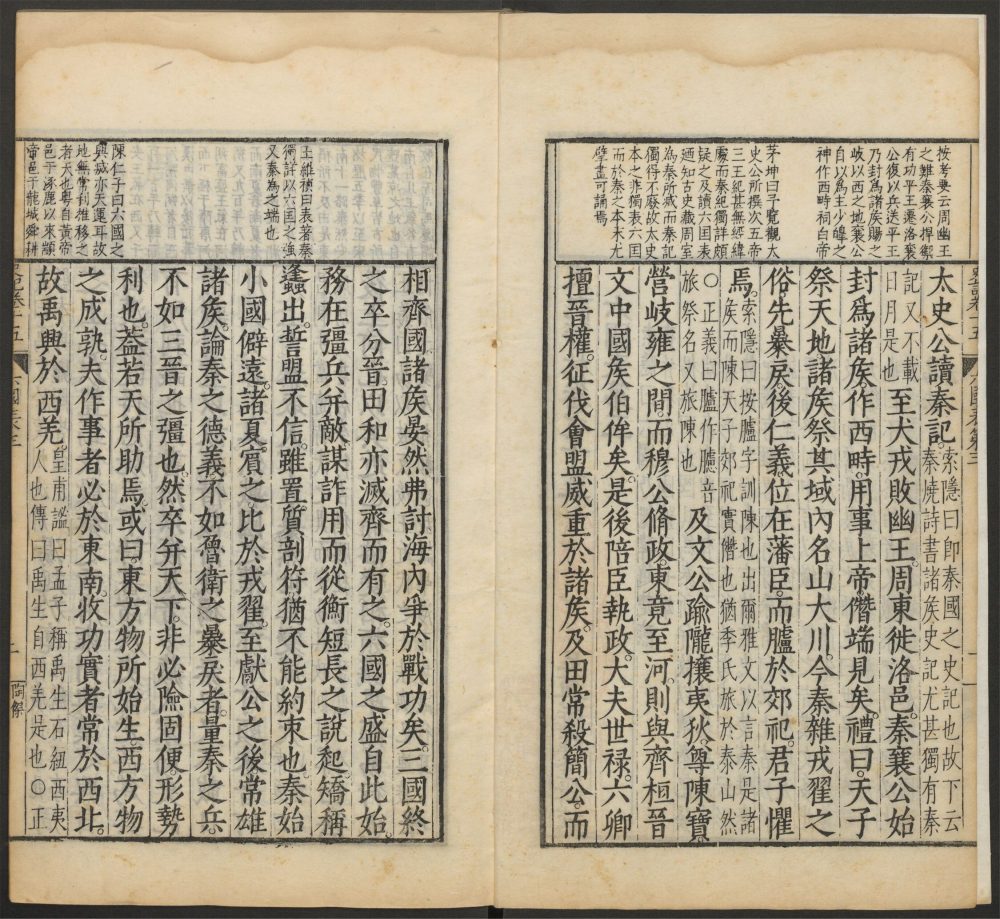 按考要云周幽王
之難秦襄公捍禦
有功平王遷洛襄
公復以兵送平王
乃封爲諸侯賜之
岐以西之地襄公
自以爲主少皥之
神作西畤祠白帝
茅坤曰予覽觀大
史公所撰次五帝
三王紀甚無經緯
處而秦紀獨詳頗
疑之及讀六囯表
廼知古史藏周室
為秦所滅而秦記
獨得不廢故太史
本之非獨表六囯
而於秦之本末尤
畫可誦焉
太史公讀秦記。索隱曰即秦國之史記也故下云
秦燒詩書諸矦史記尤甚獨有秦
記又不載
日月是也至犬戎敗幽王。周東徙洛邑。秦襄公始
封爲諸矦。作西畤。用事上帝。僭端見矣。禮曰。天子
祭天地諸矦祭其域內名山大川。今秦雜戎翟之
俗先暴戾。後仁義。位在藩臣。而臚於郊祀。君子懼
焉。索隱曰按臚字訓陳也出爾雅文以言秦是諸
矦而陳天子郊祀實僭也猶季氏旅於泰山然
○正義曰臚作臚音
旅祭名又旅陳也及文公踰隴攘夷狄。尊陳寶
營岐雍之間。而穆公脩政。東竟至河。則與齊桓晉
文中國矦伯侔矣。是後陪臣執政。大夫世祿。六卿
擅晉權。征伐會盟。威重於諸矦。及田常殺簡公。而
王維楨曰表著秦
獨詳以六囯之強
又秦為之端也
陳仁子曰六國之
興滅亦天運耳故
地無常利推移之
者天也粤自黃帝
邑于涿鹿以來顓
帝邑于龍城舜耕
相齊國諸矦晏然弗討海內爭於戰功矣。三國終
之卒分晉。田和亦滅齊而有之。六國之盛自此始。
務在彊兵幷敵。謀詐用而從衡短長之說起。矯稱
蠭出。誓盟不信。雖置質剖符。猶不能約束也。秦始
小國僻遠。諸夏賓之比於戎翟。至獻公之後常雄
諸矦。論秦之德義不如魯衛之暴戾者。量秦之兵。
不如三晉之彊也。然卒幷天下。非必險固便。形勢
利也。蓋若天所助焉。或曰。東方物所始生。西方物
之成孰。夫作事者必於東南。收功實者常於西北。
故禹興於西羌。皇甫謐曰孟子稱禹生石紐西夷
人也傳曰禹生自西羌是也○正